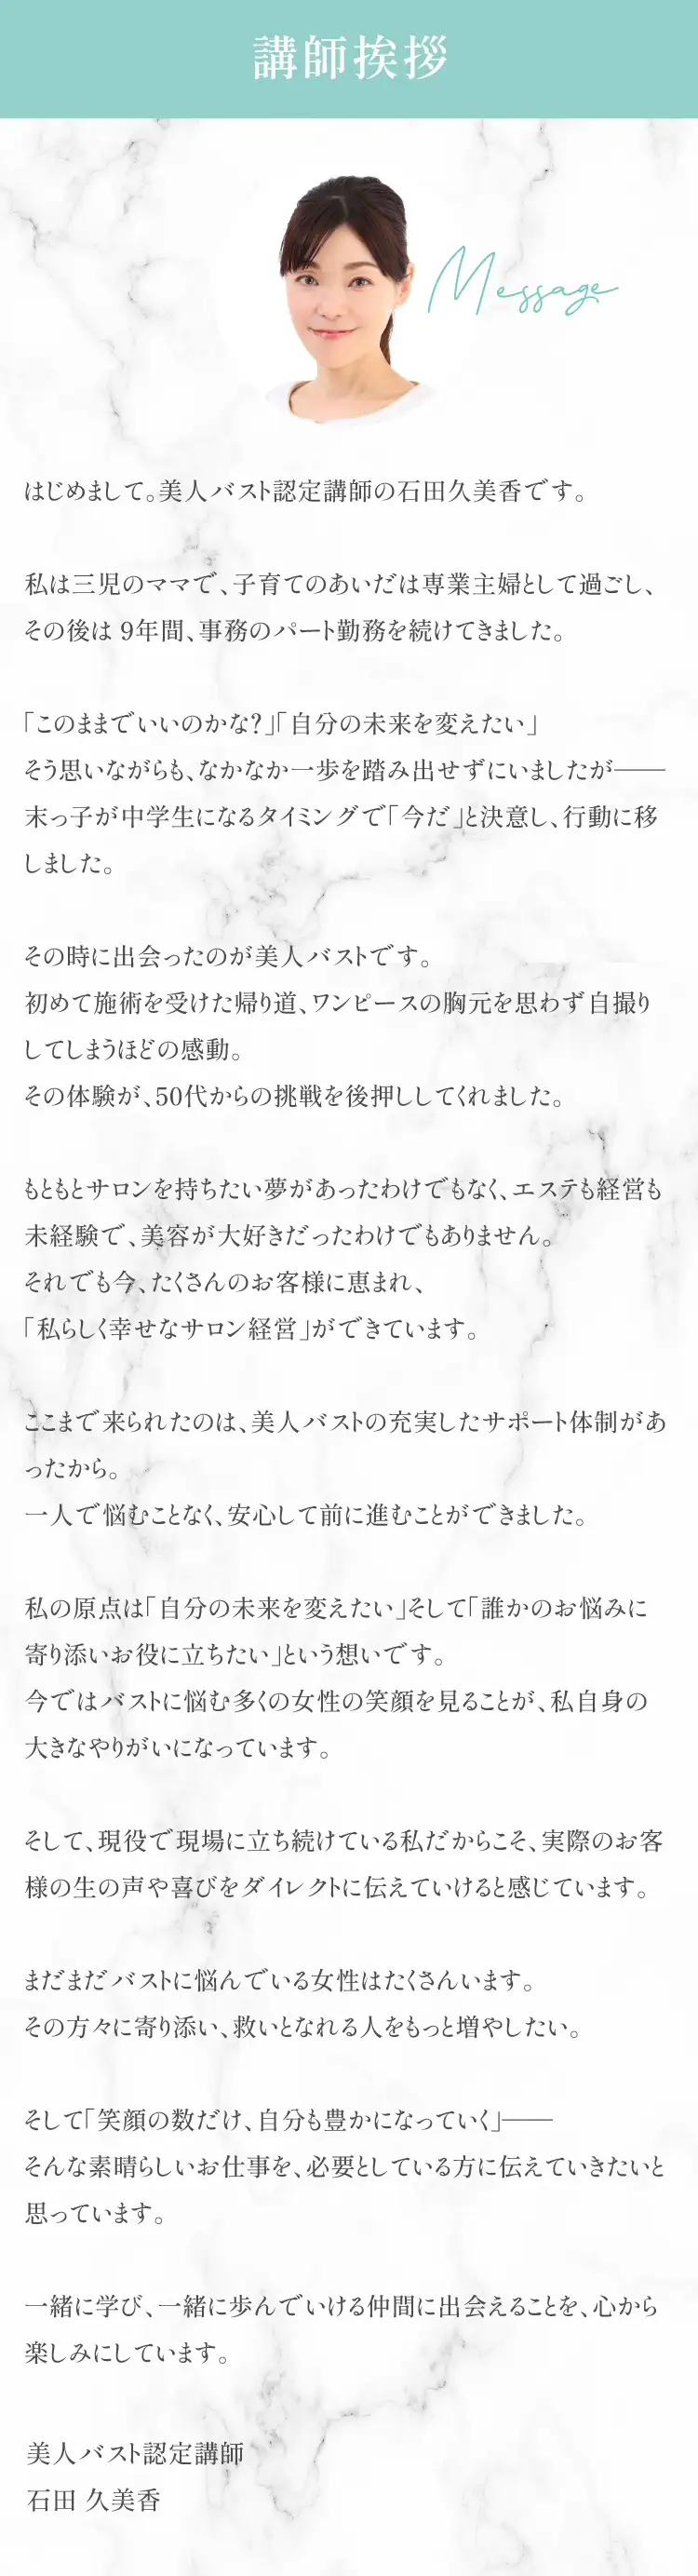 講師挨拶
Message
はじめまして。美人バスト認定講師の石田久美香です。
私は三児のママで、子育てのあいだは専業主婦として過ごし、
その後は 9年間、事務のパート勤務を続けてきました。
「このままでいいのかな?」「自分の未来を変えたい」
そう思いながらも、なかなか一歩を踏み出せずにいましたが――
末っ子が中学生になるタイミングで「今だ」と決意し、行動に移
しました。
その時に出会ったのが美人バストです。
初めて施術を受けた帰り道、ワンピースの胸元を思わず自撮り
してしまうほどの感動。
その体験が、50代からの挑戦を後押ししてくれました。
もともとサロンを持ちたい夢があったわけでもなく、エステも経営も
未経験で、美容が大好きだったわけでもありません。
それでも今、たくさんのお客様に恵まれ、
「私らしく幸せなサロン経営」ができています。
ここまで来られたのは、美人バストの充実したサポート体制があ
ったから。
一人で悩むことなく、安心して前に進むことができました。
私の原点は「自分の未来を変えたい」そして「誰かのお悩みに
寄り添いお役に立ちたい」という想いです。
今ではバストに悩む多くの女性の笑顔を見ることが、私自身の
大きなやりがいになっています。
そして、現役で現場に立ち続けている私だからこそ、実際のお客
様の生の声や喜びをダイレクトに伝えていけると感じています。
まだまだバストに悩んでいる女性はたくさんいます。
その方々に寄り添い、救いとなれる人をもっと増やしたい。
そして「笑顔の数だけ、自分も豊かになっていく」――
そんな素晴らしいお仕事を、必要としている方に伝えていきたいと
思っています。
一緒に学び、一緒に歩んでいける仲間に出会えることを、心から
楽しみにしています。
美人バスト認定講師
石田 久美香